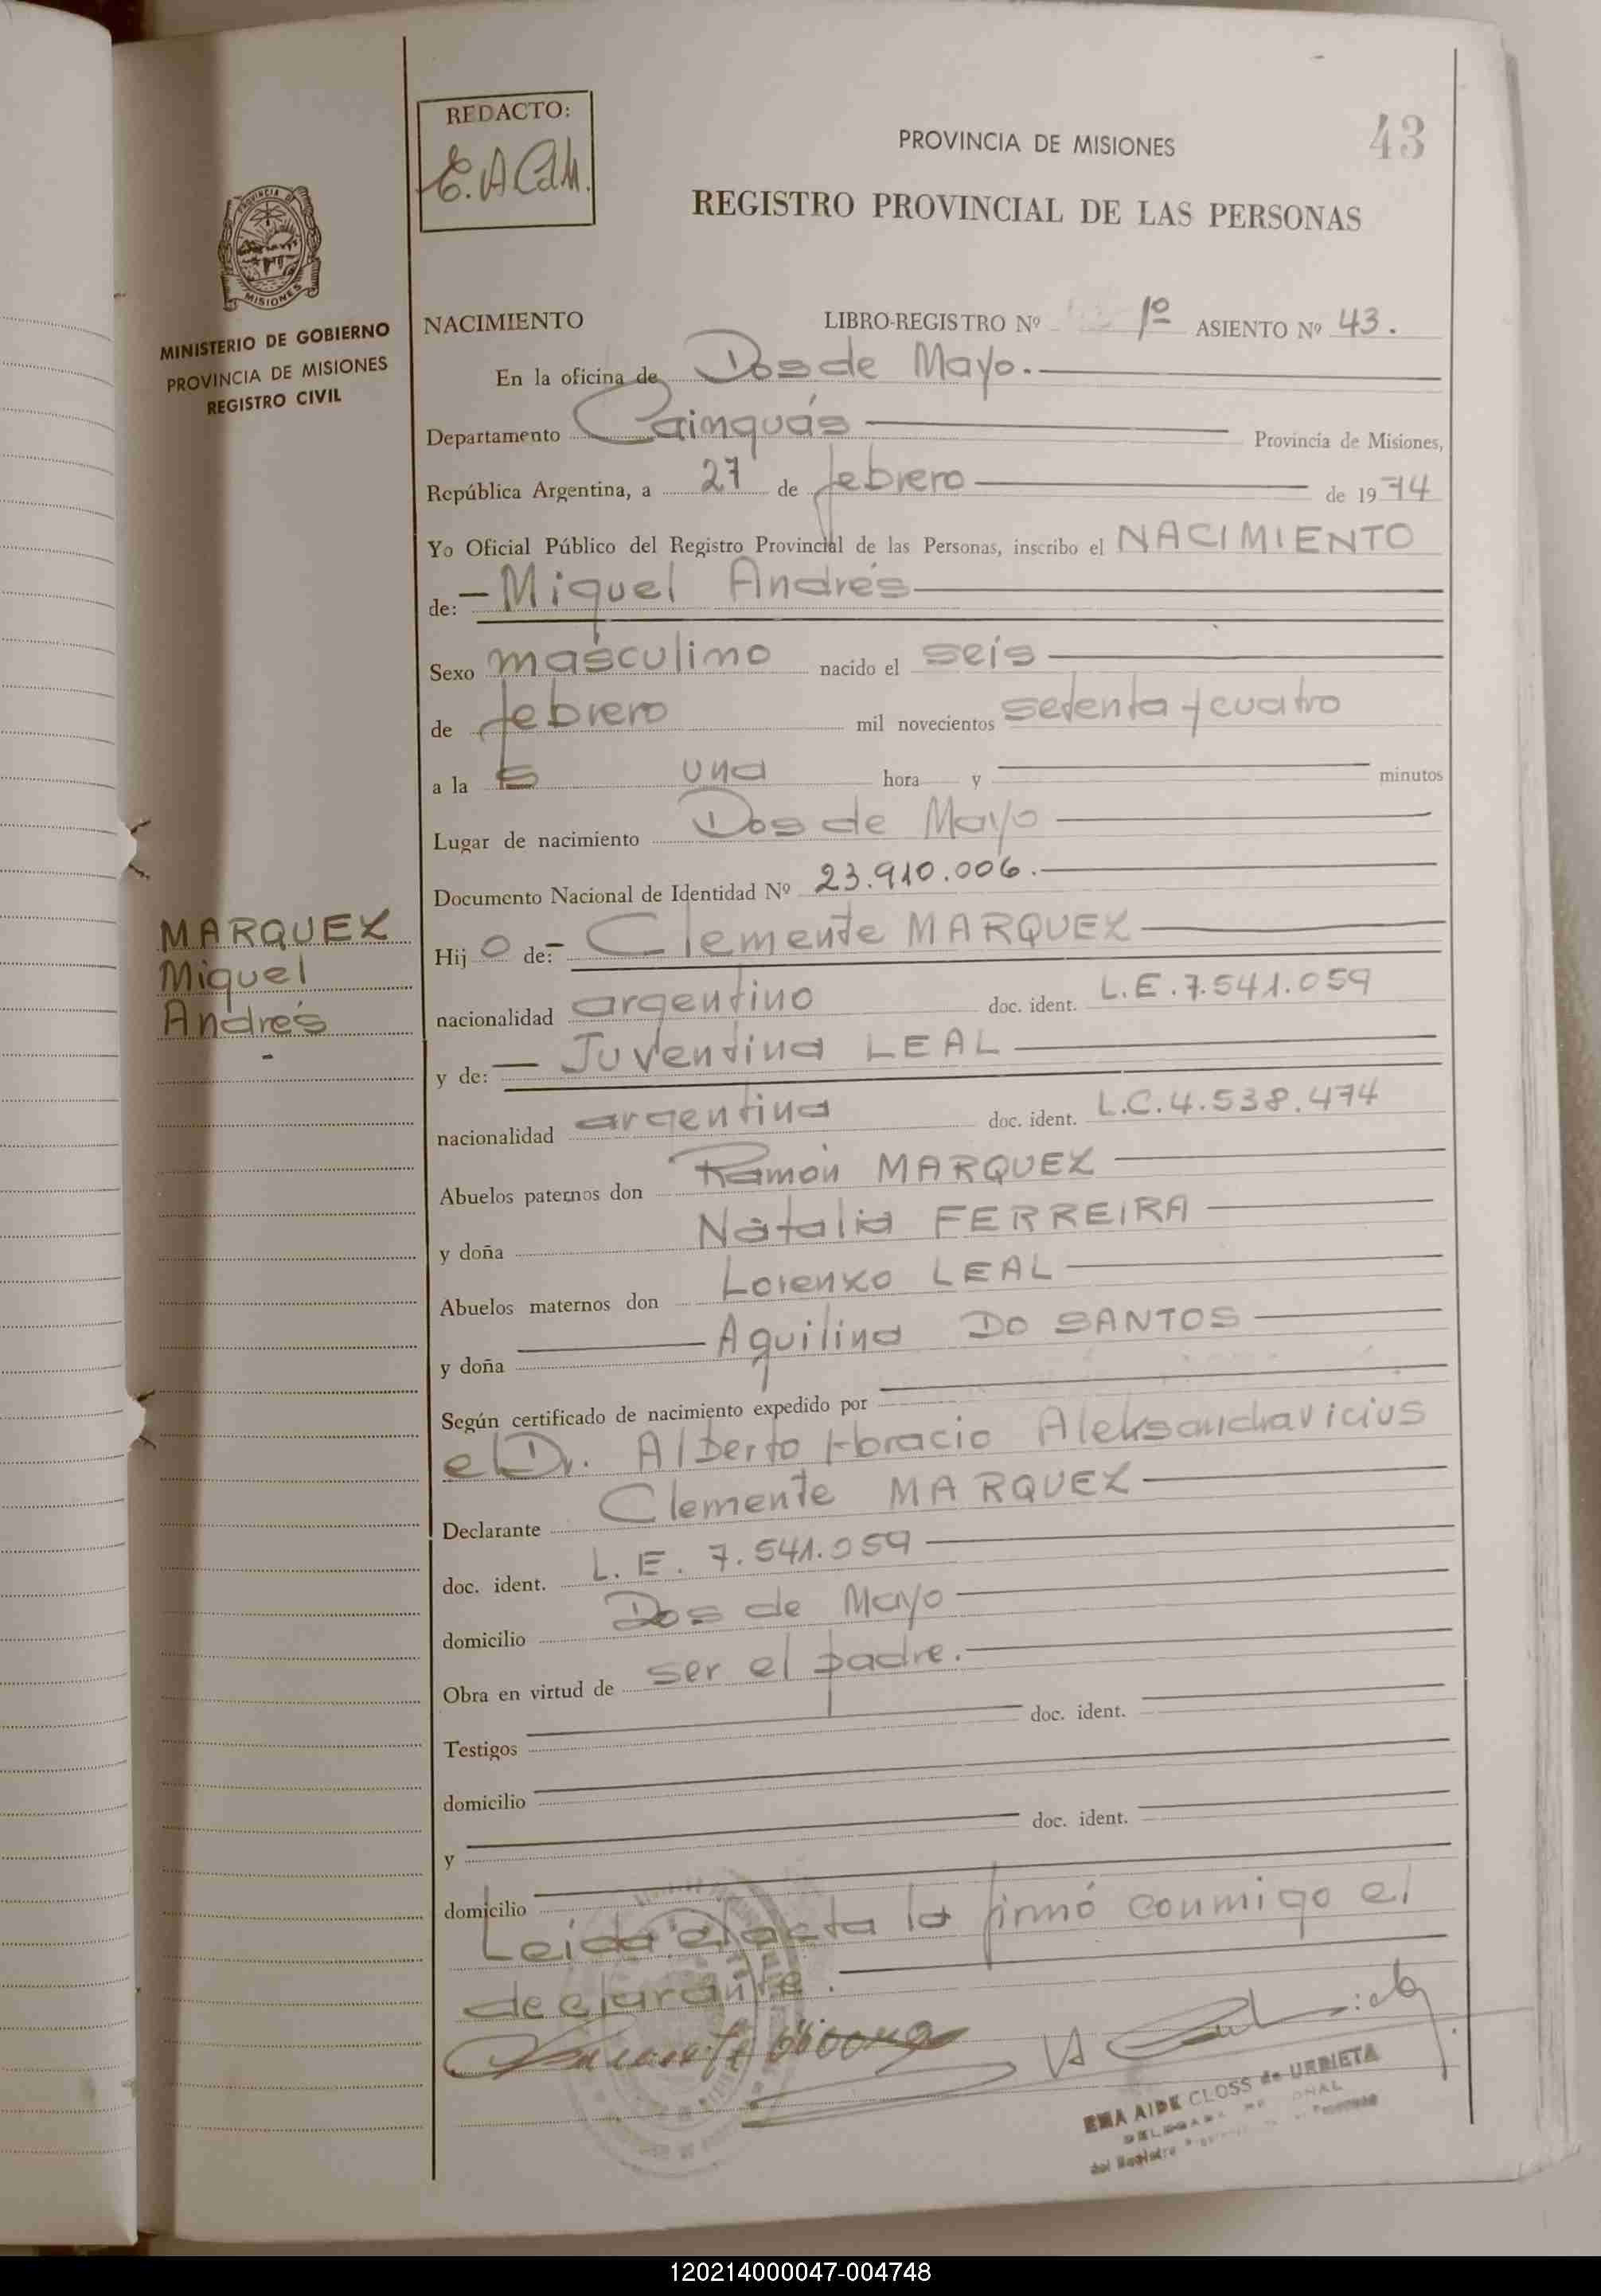 REDACTO:
E. A C d U.
PROVINCIA DE MISIONES
43
REGISTRO PROVINCIAL DE LAS PERSONAS
PROVINCIA DE
MISIONES
MINISTERIO DE GOBIERNO
PROVINCIA DE MISIONES
REGISTRO CIVIL
NACIMIENTO LIBRO-REGISTRO Nº 1º ASIENTO Nº 43.
En la oficina de Dos de Mayo.
Departamento Cainguás Provincia de Misiones,
República Argentina, a 27 de febrero de 1974
Yo Oficial Público del Registro Provincial de las Personas, inscribo el NACIMIENTO
de: Miguel Andrés
Sexo masculino nacido el seis
de febrero mil novecientos setenta y cuatro
a la s una hora y minutos
Lugar de nacimiento Dos de Mayo
Documento Nacional de Identidad Nº 23.910.006.
MARQUEZ
Miguel
Andrés
Hij o de: Clemente MARQUEZ
nacionalidad argentino doc. ident. L.E.7.541.059
y de: Juventina LEAL
nacionalidad argentina doc. ident. L.C.4.538.474
Abuelos paternos don Ramón MARQUEZ
y doña Natalia FERREIRA
Abuelos maternos don Lorenzo LEAL
y doña Aquilina DO SANTOS
Según certificado de nacimiento expedido por
el Dr. Alberto Horacio Aleksandravicius
Declarante Clemente MARQUEZ
doc. ident. L.E. 7.541.059
domicilio Dos de Mayo
Obra en virtud de ser el padre.
Testigos doc. ident.
domicilio
y doc. ident.
domicilio
Leída el acta la firmó conmigo el
declarante.
EMA AIDE CLOSS de URRIETA
del Registro
120214000047-004748